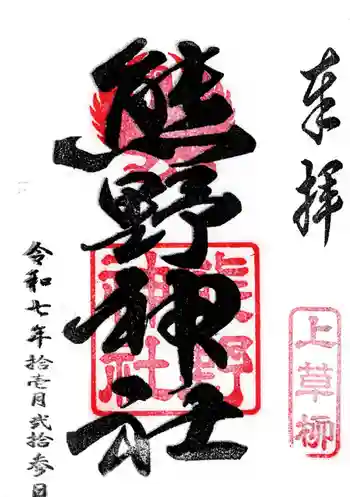 奉拝
上草柳
熊野神社
熊野神社
令和七年拾壱月弐拾参日